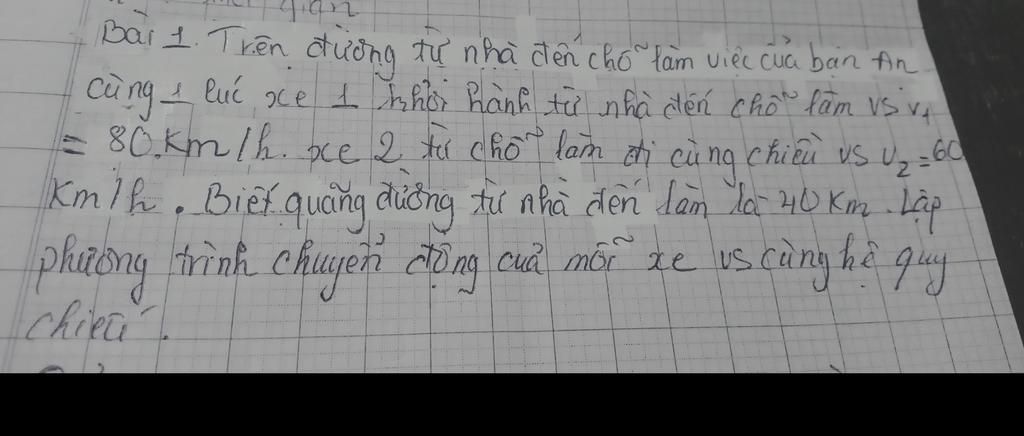 Bài 1. Trên đường từ nhà đến chỗ làm việc của bạn An
cùng 1 lúc xe 1 khởi hành từ nhà đến chỗ làm vs v₁
= 80 Km/h. xe 2 từ chỗ làm đi cùng chiều vs v₂ = 60
Km/h. Biết quãng đường từ nhà đến làm là 40 Km. Lập
phương trình chuyển động của mỗi xe vs cùng hệ quy
chiếu.